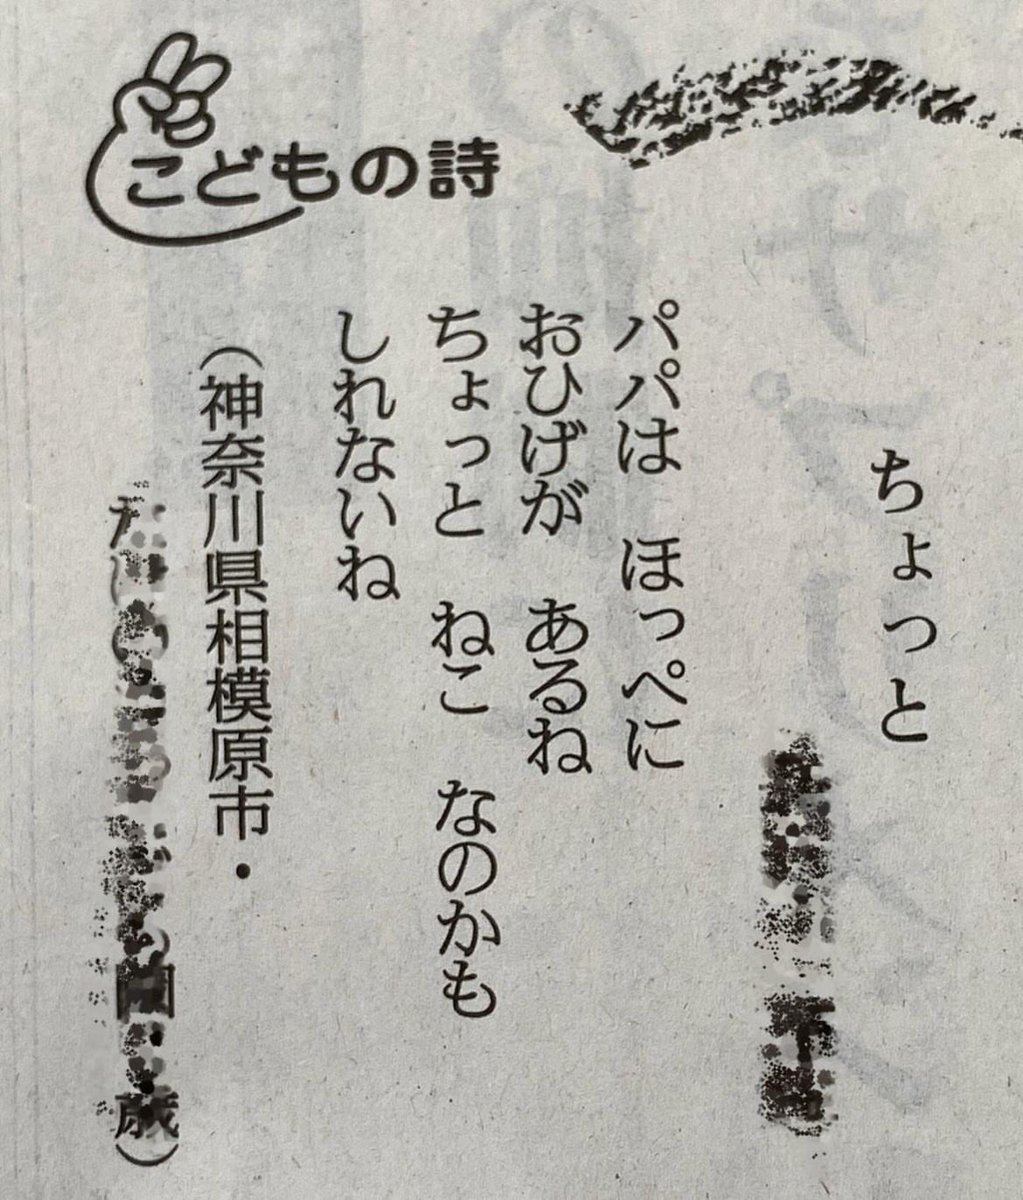 こどもの詩
ちょっと
パパは ほっぺに
おひげが あるね
ちょっと ねこ なのかも
しれないね
（神奈川県相模原市・
園・
歳）